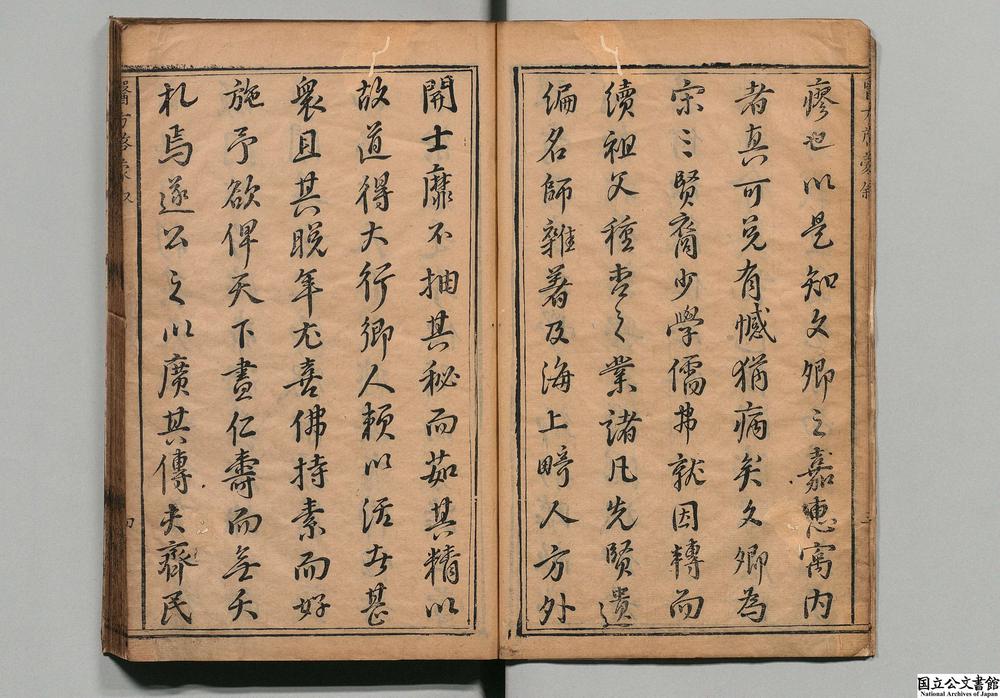 瘳也以是知文卿之嘉惠寓内
者真可兑有憾猶病矣文卿為
宋三賢裔少學儒弗就因轉而
續祖父種杏之業諸凡先賢遺
編名師雜著及海上畸人方外
開士靡不抽其秘而茹其精以
故道得大行鄉人賴以活者甚
衆且其晚年尤喜佛持素而好
施予欲俾天下盡仁壽而無夭
札焉遂公之以廣其傳夫齊民
国立公文書館
National Archives of Japan